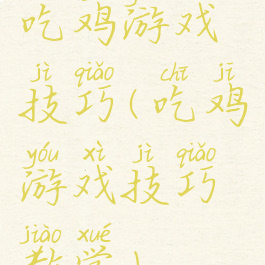 吃鸡游戏
jì qiǎo chī jī
技巧(吃鸡
yóu xì jì qiǎo
游戏技巧
jiào xué
教学)